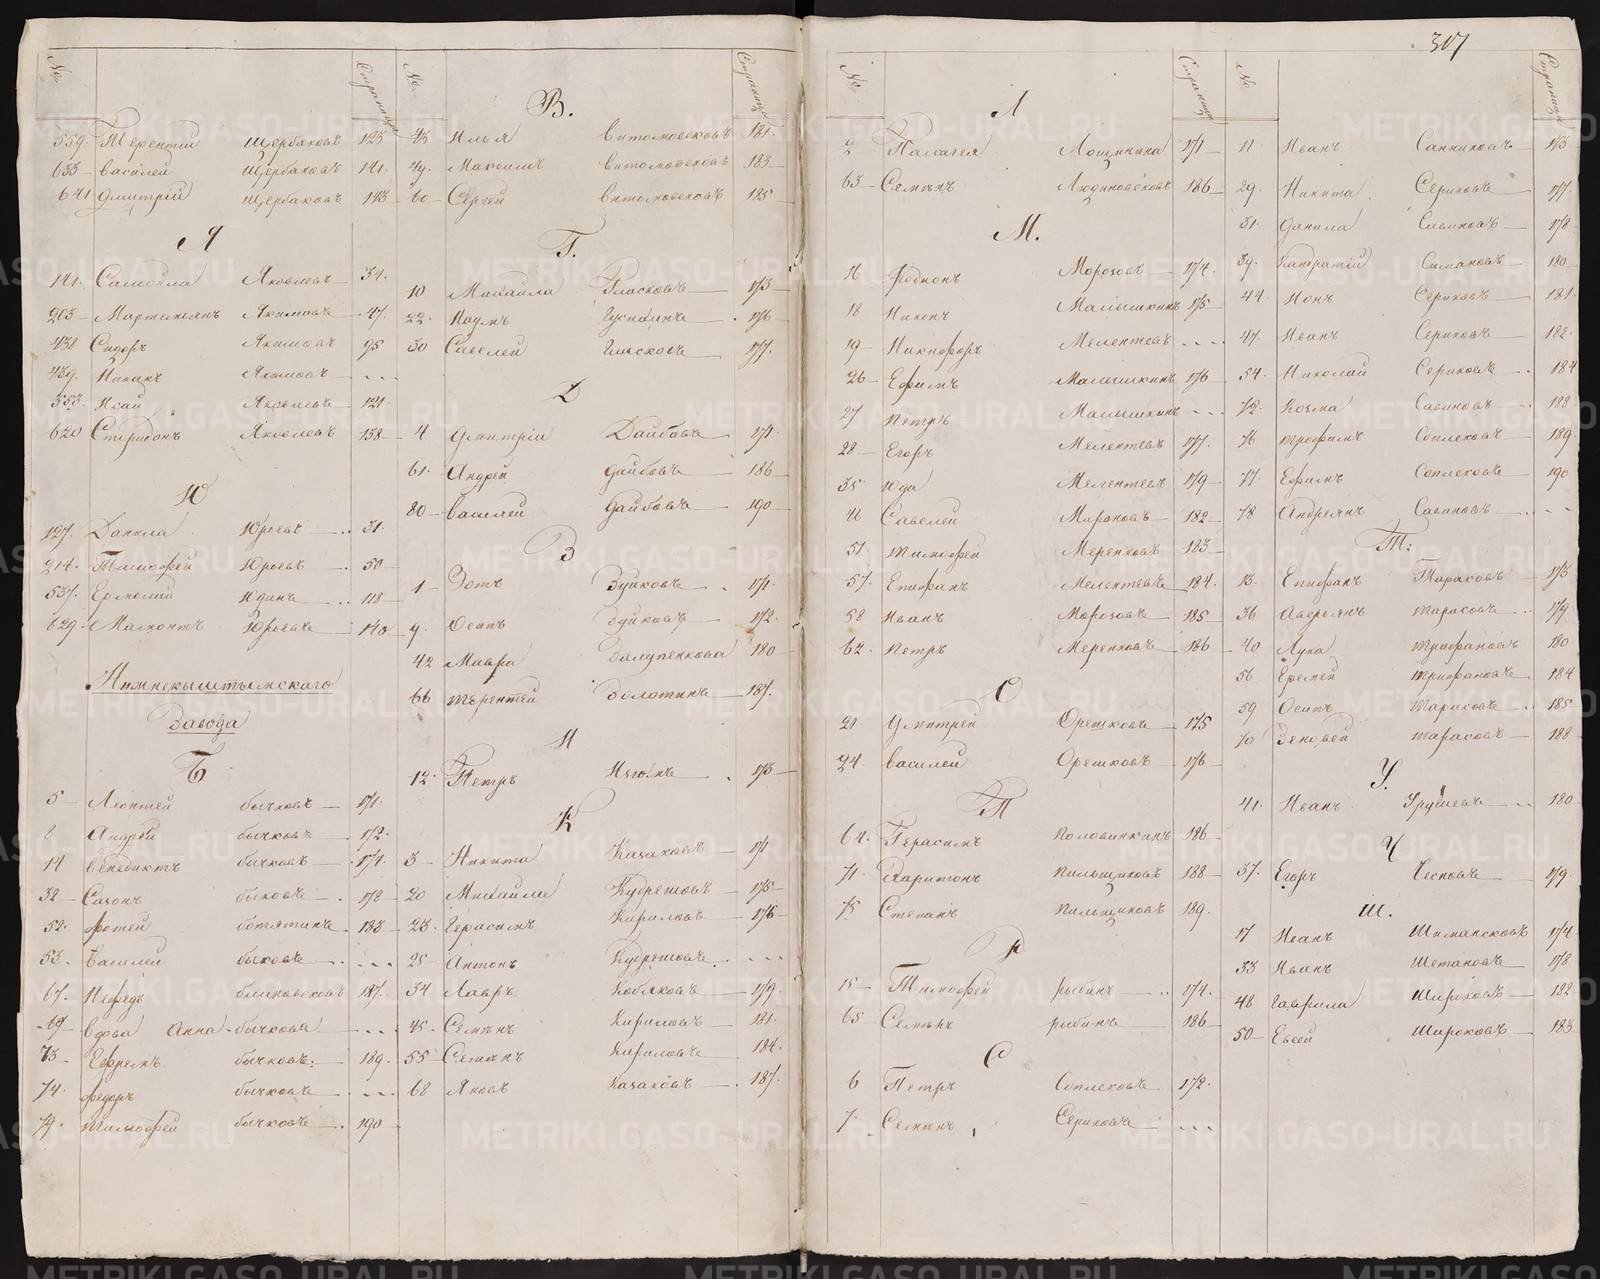 307
№ Страница
559 Терентий Щербаковъ 125
633 Василей Щербаковъ 141
641 Дмитрій Щербаковъ 143
Я
141 Самойла Яковлевъ 34
203 Мартемьянъ Якимовъ 47
438 Сидоръ Якимовъ 95
439 Иванъ Якимовъ ...
553 Исай Яковлевъ 121
620 Спиридонъ Яковлевъ 138
Ю
127 Данила Юрьевъ 31
214 Тимофей Юрьевъ 50
537 Ермолай Юдинъ 118
629 Юрьевъ 140
Нижнекыштымскаго
Завода
Б
5 Леонтей Бычковъ 171
8 Андрей Бычковъ 172
14 Венедиктъ Бычковъ 174
32 Сазонъ Быковъ 178
52 Фотей Ботятинъ 183
53 Василей Быковъ ...
67 Нефедъ 187
69 Вдова Анна Бычкова ...
73 Ефремъ Бычковъ 189
74 Федоръ Бычковъ ...
79 Тимофей Бычковъ 190
№ Страница
В.
43 Илья Витомсковъ 181
49 Максимъ 183
60 Сергей 185
Г.
10 Михайла Гласковъ 173
22 Наумъ Гусихинъ 176
30 Савелей Гласковъ 177
Д
4 Дмитрій Дайбовъ 171
61 Андрей Дайбовъ 186
80 Василей Дайбовъ 190
З
1 Зотъ Зуйковъ 171
9 Осипъ Зуйковъ 172
42 Мавра Залупенкова 180
66 Терентей Золотинъ 187
И
12 Петръ 173
К
3 Никита Казаковъ 171
20 Михайла Кудрешовъ 175
23 Герасимъ Кириловъ 176
25 Антонъ Кудрешовъ ...
34 Лавръ Кобяковъ 179
45 Семенъ Кириловъ 181
55 Семенъ Кириловъ 184
68 Яковъ Казаковъ 187
№ Страница
Л
2 Палагея Лощинина 171
63 Семенъ Людиновсковъ 186
М.
16 Родионъ Морозовъ 174
18 Никонъ Малышкинъ 175
19 Никифоръ Мелентевъ ...
26 Ефимъ Малышкинъ 176
27 Петръ Малышкинъ ...
28 Егоръ Мелентевъ 177
35 Юда Мелентевъ 179
46 Савелей Мироновъ 182
51 Тимофей Меренковъ 183
57 Епифанъ Мелентевъ 184
58 Иванъ Морозовъ 185
62 Петръ Меренковъ 186
О
21 Дмитрей Орешковъ 175
24 Василей Орешковъ 176
П
64 Герасимъ Половинкинъ 186
71 Харитонъ Пильщиковъ 188
75 Степанъ Пильщиковъ 189
Р
15 Тимофей Рыбинъ 174
65 Семенъ Рыбинъ 186
С
6 Петръ Соплековъ 172
7 Семенъ Сериковъ ...
№ Страница
11 Иванъ Санниковъ 173
29 Никита Сериковъ 177
31 Данила Савиновъ 178
39 Кандратій Симановъ 180
44 Ионъ Сериковъ 181
47 Иванъ Сериковъ 182
54 Николай Сериковъ 184
72 Козма Савиновъ 188
76 Трофимъ Соплековъ 189
77 Ефимъ Соплековъ 190
78 Андреянъ Савиновъ ...
Т:
13 Епифанъ Тарасовъ 173
36 Аверьянъ Тарасовъ 179
40 Лука Трифановъ 180
56 Еремей Трифановъ 184
59 Осипъ Тарасовъ 185
70 Зеновей Тарасовъ 188
У.
41 Иванъ Урушевъ 180
Ч
37 Егоръ Чесновъ 179
Ш.
17 Иванъ Шимансковъ 174
33 Иванъ Шетановъ 178
48 Гаврила Широковъ 182
50 Евсей Широковъ 183
METRIKI.GASO-URAL.RU